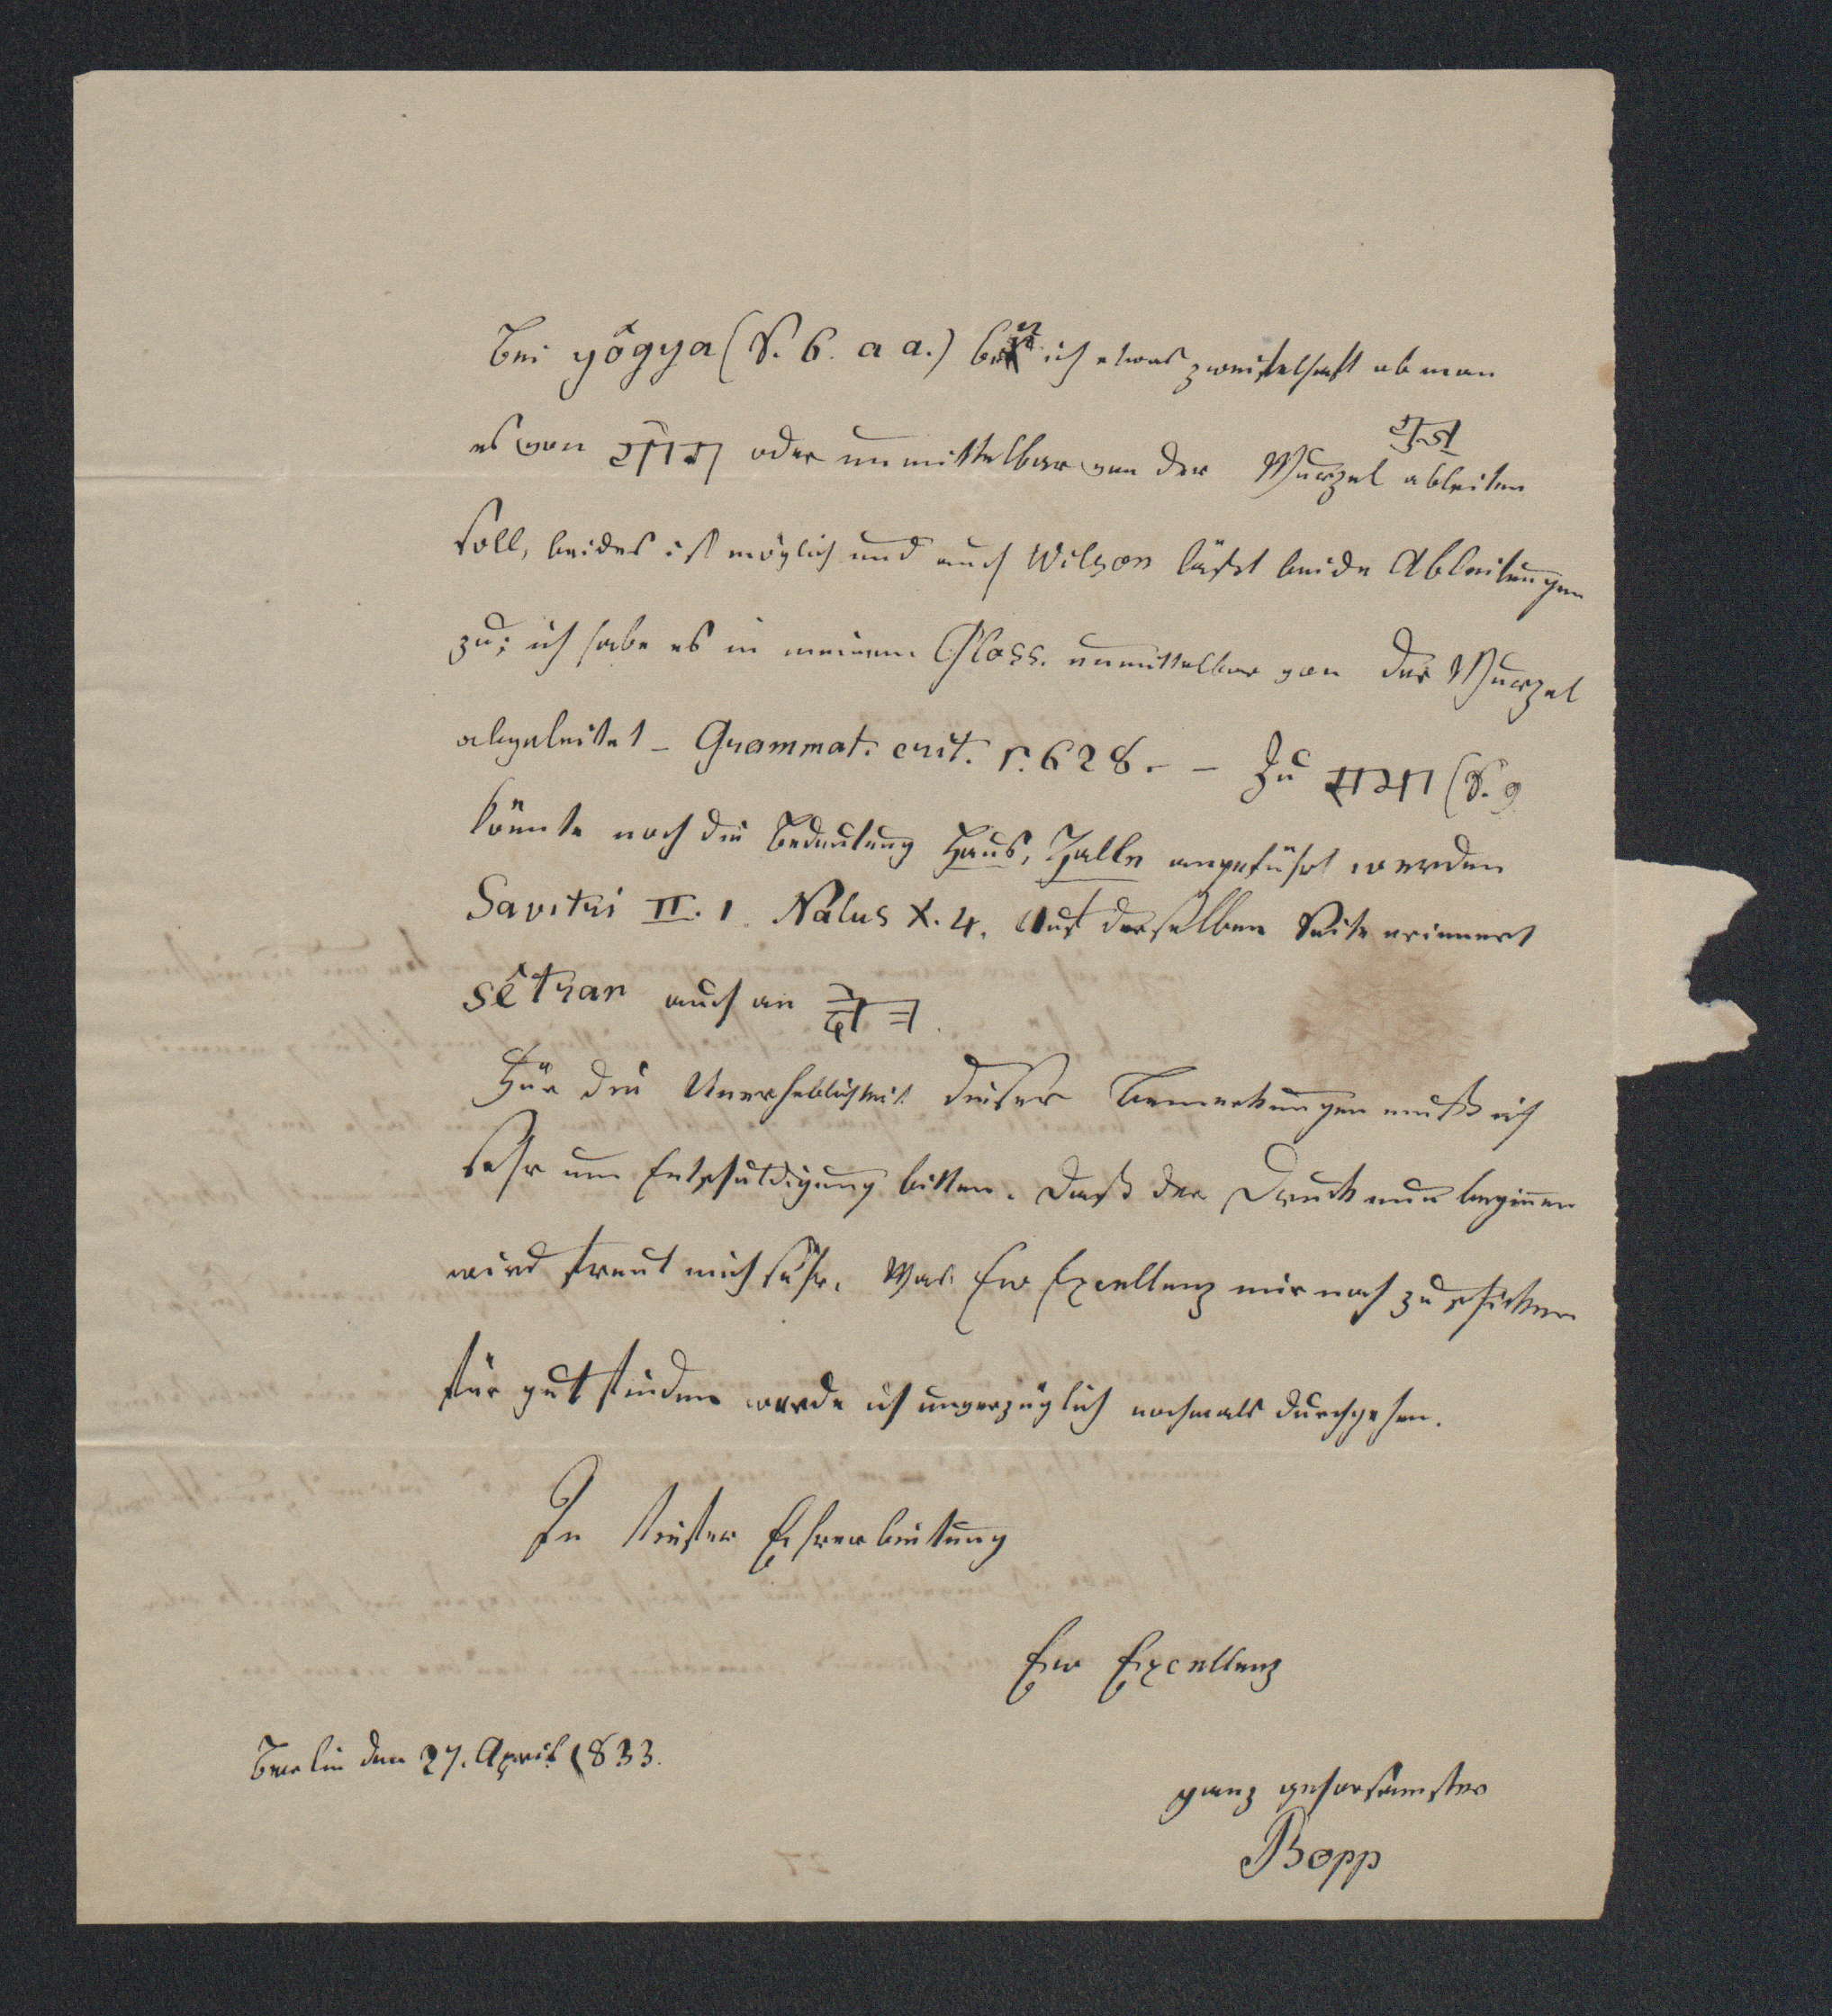 Bei yôgya (S. 6. a a.) bin ich etwas zweifelhaft ob man
es von योग oder unmittelbar von der Wurzel युज् ableiten
soll, beides ist möglich und auch Wilson läßt beide Ableitungen
zu; ich habe es in meinem Gloss. unmittelbar von der Wurzel
abgeleitet – Grammat. crit. r. 628. – Zu सभा (S. 9
könnte noch die Bedeutung Haus, Halle angeführt werden
Savitri II. 1. Nalus X. 4. Auf derselben Seite erinnert
sêtran auch an
Für die Unerheblichkeit dieser Bemerkungen muß ich
sehr um Entschuldigung bitten. Daß der Druck nun beginnen
wird freut mich sehr. Was Ew Excellenz mir noch zu schicken
für gut finden werde ich unverzüglich nochmals durchgehen.
In tiefster Ehrerbietung
Ew Excellenz
Berlin den 27. April 1833.
ganz gehorsamster
Bopp